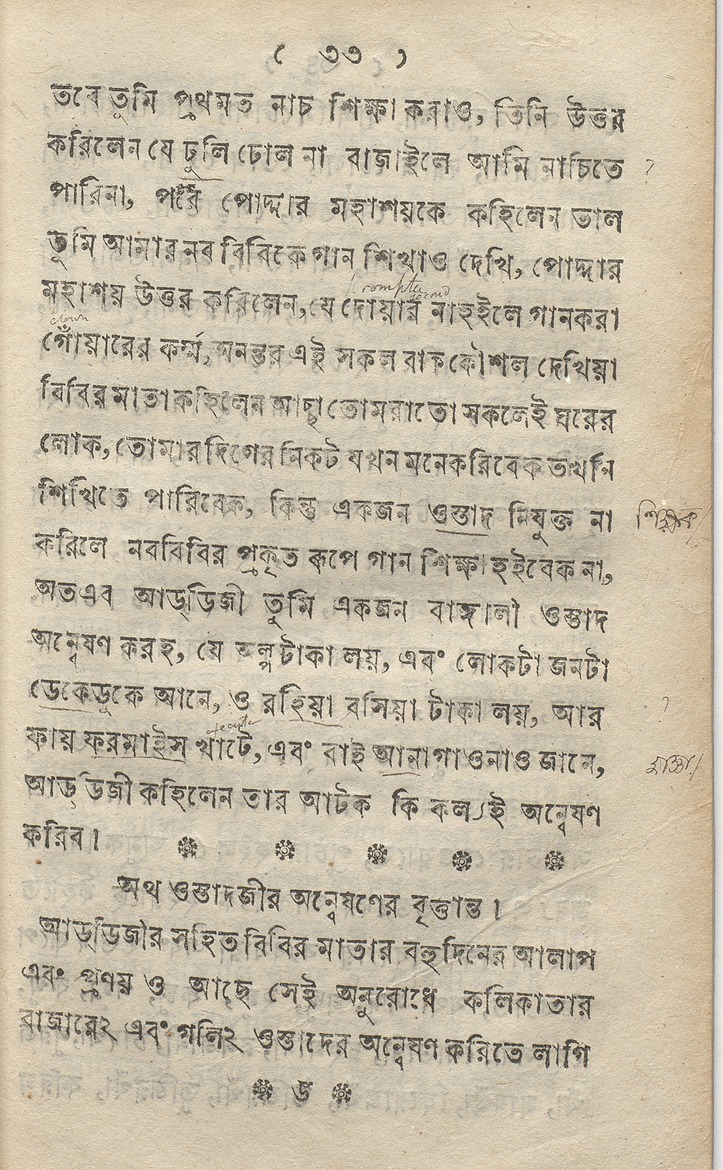 ( ৩৩ )
তবে তুমি প্রথমত নাচ শিক্ষা করাও, তিনি উত্তর
করিলেন যে ঢুলি ঢোল না বাজাইলে আমি নাচিতে ?
পারিনা, পরে পোদ্দার মহাশয়কে কহিলেন ভাল
তুমি আমার নব বিবিকে গান শিখাও দেখি, পোদ্দার
মহাশয় উত্তর করিলেন, যে দোয়ার নাহইলে গানকরা
clown
গোঁয়ারের কর্ম্ম, অনন্তর এই সকল বাককৌশল দেখিয়া
বিবির মাতা কহিলেন আছা তোমরাতো সকলেই ঘরের
লোক, তোমারদিগের নিকট যখন মনেকরিবেক তখনি
শিখিতে পারিবেক, কিন্তু একজন ওস্তাদ নিযুক্ত না
শিক্ষক/
করিলে নববিবির প্রকৃত রূপে গান শিক্ষা হইবেক না,
অতএব আড্ডিজী তুমি একজন বাঙ্গালী ওস্তাদ
অন্বেষণ করহ, যে অল্পটাকা লয়, এবং লোকটা জনটা
ডেকেডুকে আনে, ও রহিয়া বসিয়া টাকা লয়, আর ?
ফায় ফরমাইস খাটে, এবং বাই আনাগাওনাও জানে,
আড্ডজী কহিলেন তার আটক কি কল্যই অন্বেষণ
করিব।
অথ ওস্তাদজীর অন্বেষণের বৃত্তান্ত।
আড্ডিজীর সহিত বিবির মাতার বহুদিনের আলাপ
এবং প্রণয় ও আছে সেই অনুরোধে কলিকাতার
বাজারে২ এবং গলি২ ওস্তাদের অন্বেষণ করিতে লাগি
ঙ